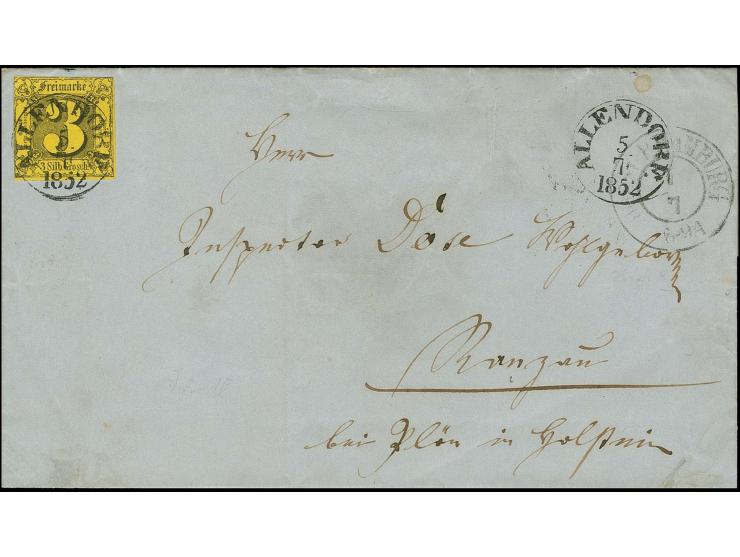 Freimarke
3
3 Silb. Grosch.
ALLENDORF
5
7
1852
ALLENDORF
5
7
1852
HAMBURG
7
8-9A
Herr
Inspector Döse Wohlgeborn
Ranzau
bei Plön in Holstein